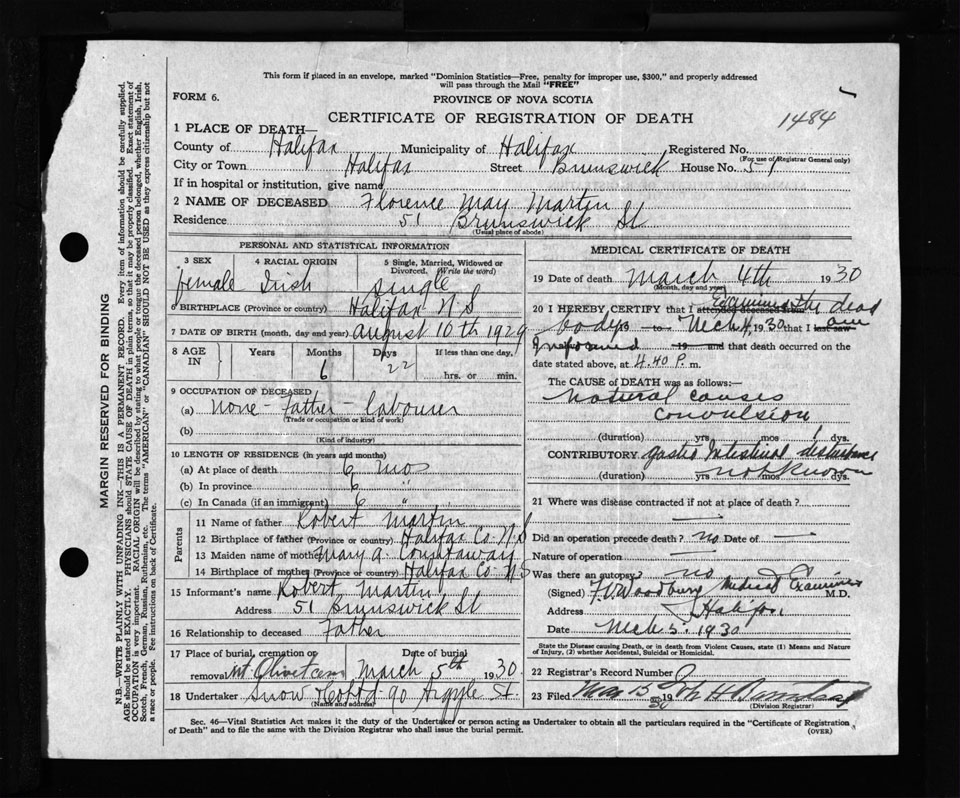 This form if placed in an envelope, marked "Dominion Statistics—Free, penalty for improper use, $300," and properly addressed
will pass through the Mail "FREE"
FORM 6.
PROVINCE OF NOVA SCOTIA
CERTIFICATE OF REGISTRATION OF DEATH
1484
1 PLACE OF DEATH—
County of Halifax Municipality of Halifax Registered No.
(For use of Registrar General only)
City or Town Halifax Street Brunswick House No. 51
If in hospital or institution, give name
2 NAME OF DECEASED Florence May Martin
Residence 51 Brunswick St
(Usual place of abode)
PERSONAL AND STATISTICAL INFORMATION
3 SEX 4 RACIAL ORIGIN 5 Single, Married, Widowed or
Divorced. (Write the word)
female Irish single
6 BIRTHPLACE (Province or country) Halifax N S
7 DATE OF BIRTH (month, day and year) August 10th 1929
8 AGE IN Years Months Days If less than one day,
6 22 hrs. or min.
9 OCCUPATION OF DECEASED
(a) None - Father - labourer
(Trade or occupation or kind of work)
(b)
(Kind of industry)
10 LENGTH OF RESIDENCE (in years and months)
(a) At place of death 6 mos
(b) In province 6 "
(c) In Canada (if an immigrant) 6 "
Parents
11 Name of father Robert Martin
12 Birthplace of father (Province or country) Halifax Co. N.S
13 Maiden name of mother Mary A.
14 Birthplace of mother (Province or country) Halifax Co N.S
15 Informant's name Robert Martin
Address 51 Brunswick St
16 Relationship to deceased Father
17 Place of burial, cremation or Date of burial
removal Mt. Olivet cem March 5th 1930
18 Undertaker Snow 90 Argyle St.
(Name and address)
MEDICAL CERTIFICATE OF DEATH
19 Date of death March 4th 1930
(Month, day and year)
20 I HEREBY CERTIFY that I attended deceased from Examined the dead
body 19 to Mch 4, 1930 that I last saw am
informed 19 and that death occurred on the
date stated above, at 4.40 P. m.
The CAUSE of DEATH was as follows:
Natural causes
Convulsion
(duration) yrs. mos. 1 dys.
CONTRIBUTORY. Gastro Intestinal disturbance
(duration) not known yrs. mos. dys.
21 Where was disease contracted if not at place of death?
—
Did an operation precede death? no Date of —
Nature of operation —
Was there an autopsy? no
(Signed) F.V. Woodbury Medical Examiner M.D.
Address Halifax
Date Mch 5. 1930
State the Disease causing Death, or in death from Violent Causes, state (1) Means and
Nature of Injury, (2) whether Accidental, Suicidal or Homicidal.
22 Registrar's Record Number
23 Filed Mar 15 19
30
(Division Registrar)
Sec. 46—Vital Statistics Act makes it the duty of the Undertaker or person acting as Undertaker to obtain all the particulars required in the "Certificate of Registration
of Death" and to file the same with the Division Registrar who shall issue the burial permit.
(OVER)
MARGIN RESERVED FOR BINDING
N.B.—WRITE PLAINLY WITH UNFADING INK—THIS IS A PERMANENT RECORD. Every item of information should be carefully supplied.
AGE should be stated EXACTLY. PHYSICIANS should STATE CAUSE OF DEATH in plain terms, so that it may be properly classified. Exact statement of
OCCUPATION is very important. RACIAL ORIGIN will be described by stating to what people or tongue the deceased person belonged, whether English, Irish,
Scotch, French, German, Russian, Ruthenian, etc. The terms "AMERICAN" or "CANADIAN" SHOULD NOT BE USED as they express citizenship but not
a race or people. See instructions on back of Certificate.